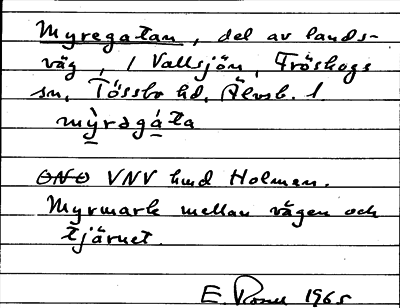 Myregatan, del av lands-
väg, i Vallsjön, Fröskogs
sn, Tössbo hd, Älvsb. l.
mỳrəgáta
ONO VNV hmd Holman.
Myrmark mellan vägen och
tjärnet.
E. 1965